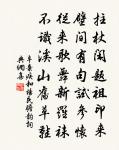 拄杖閑題祖印來
壁間有句試參懷
從來歌舞新羅袜
不識溪山舊草鞋
辛棄疾和楊民瞻韻